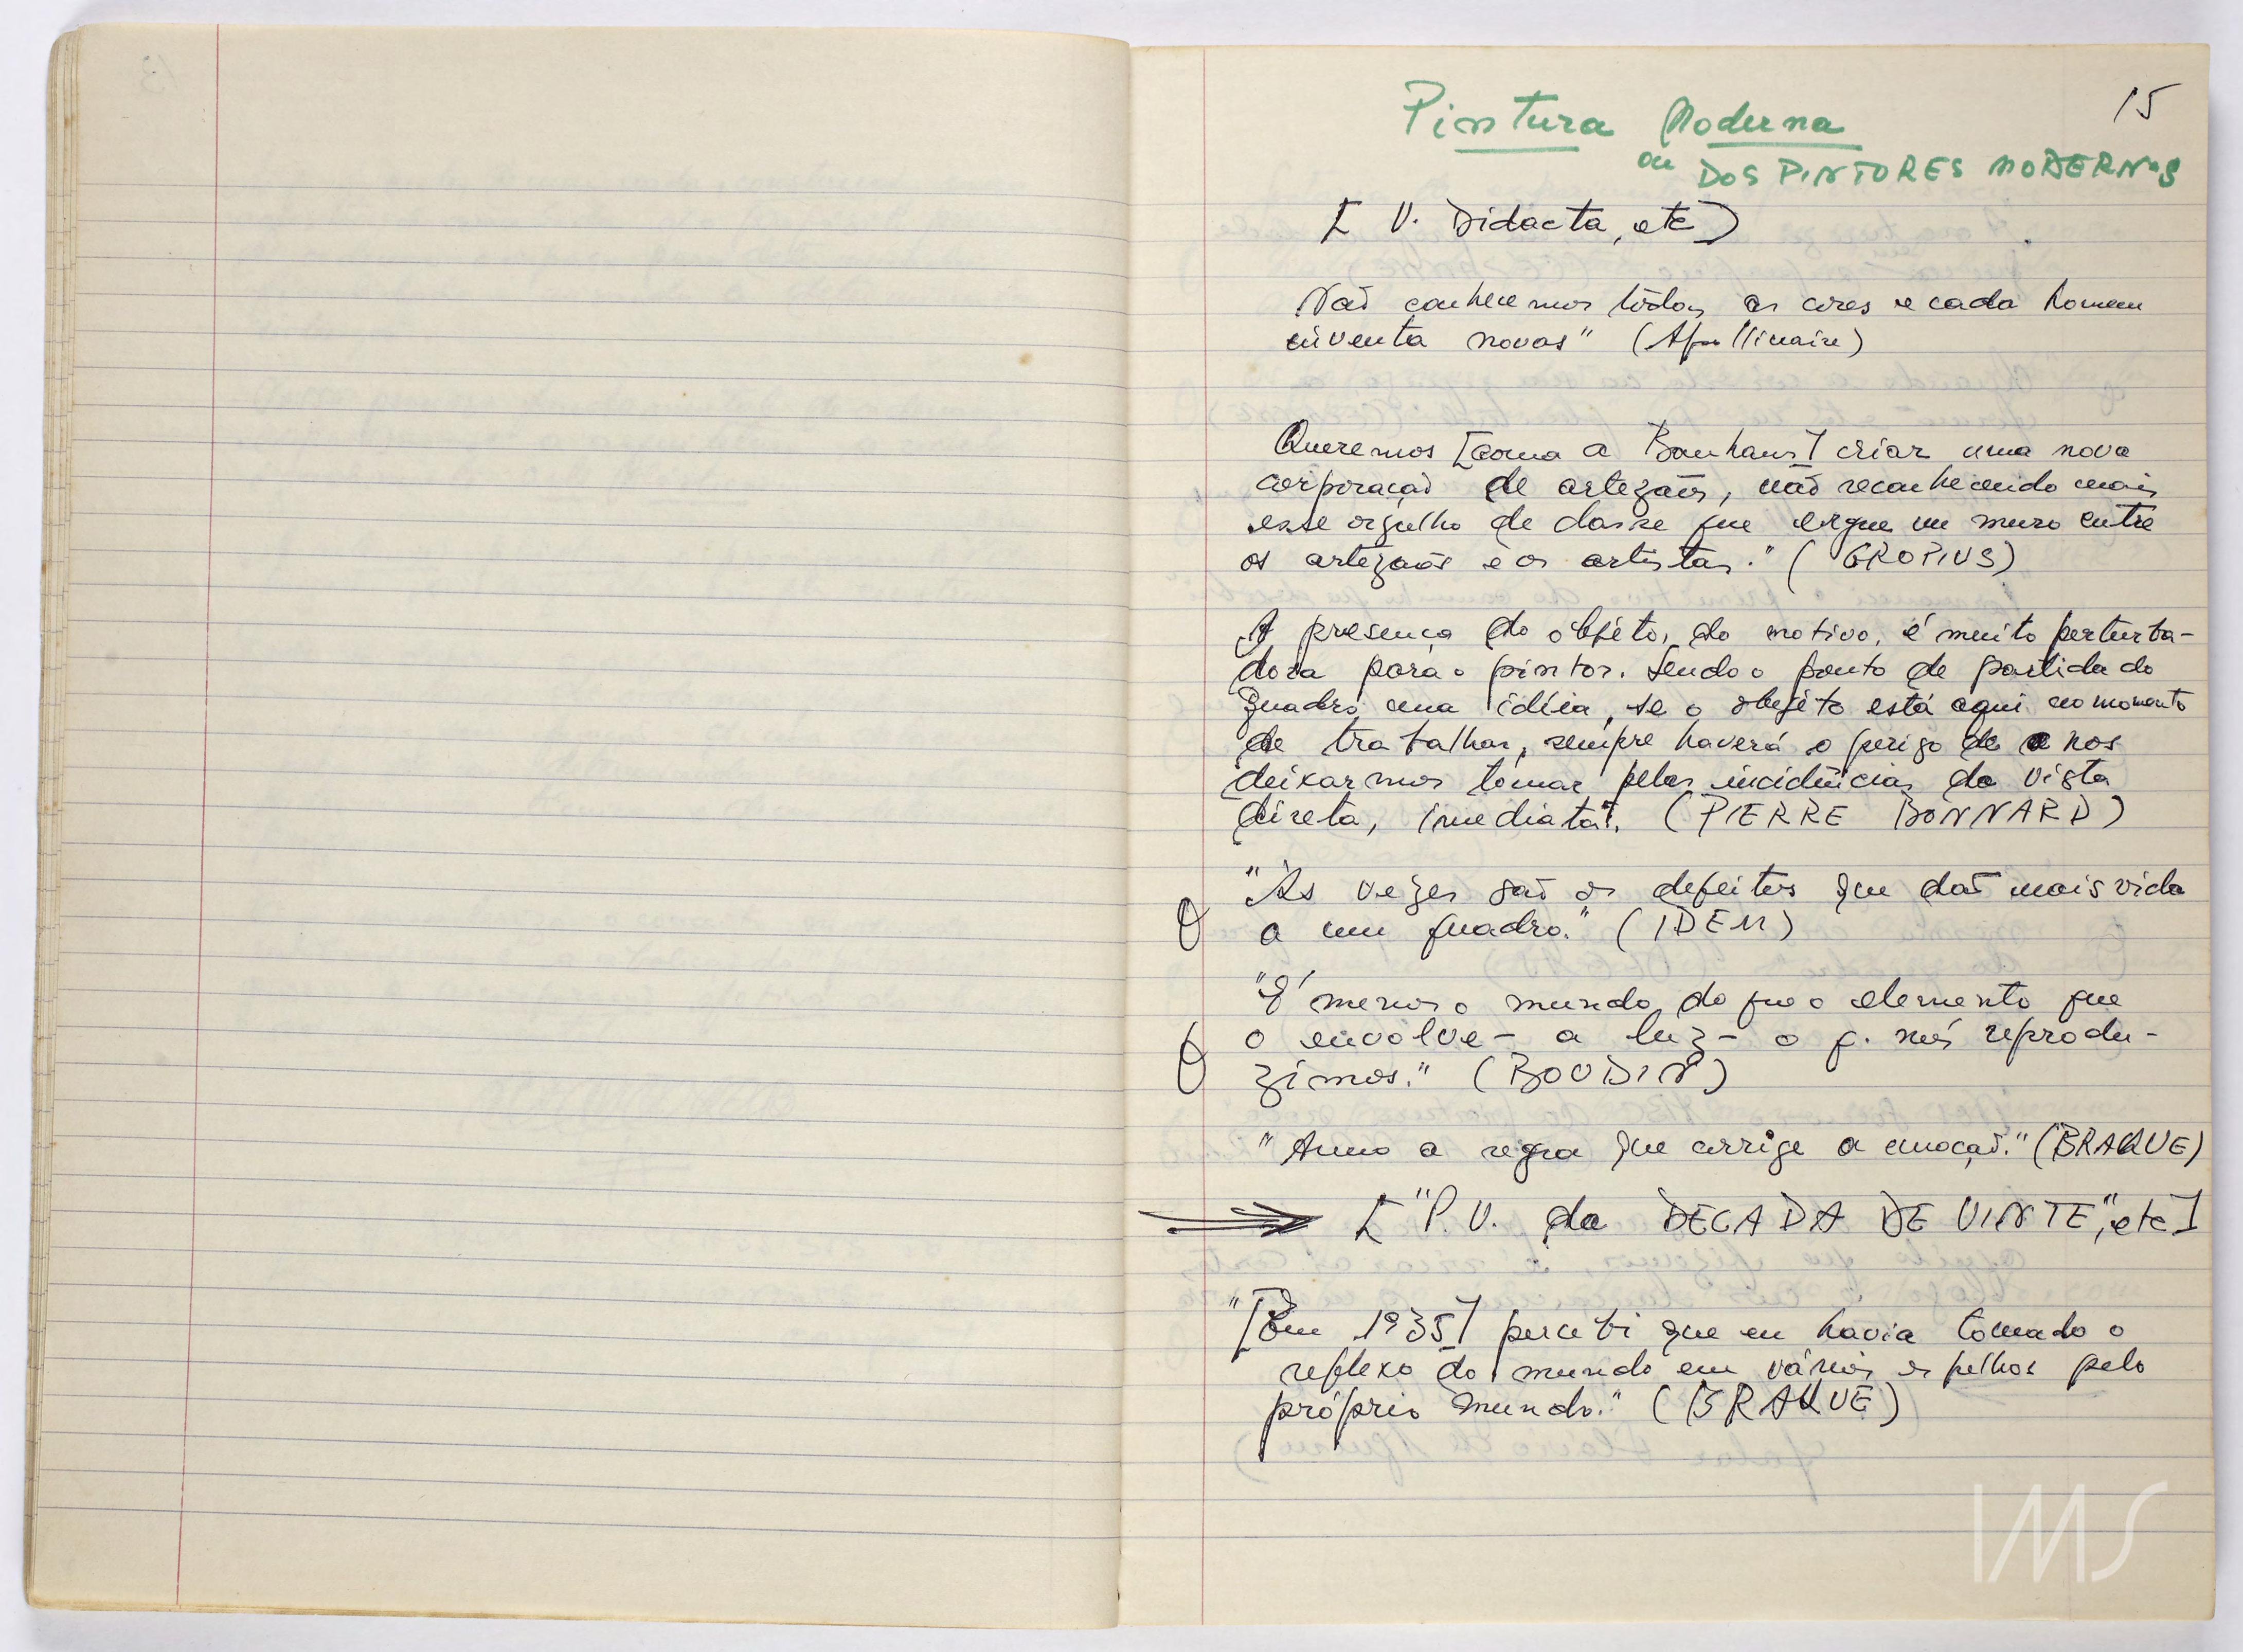 15
Pintura Moderna
ou DOS PINTORES MODERNOS
[ V. Didacta, etc)
Não conhecemos tôdas as cores e cada homem
inventa novas" (Apollinaire)
Queremos [com a Bauhaus] criar uma nova
corporação de artezãos, não reconhecendo mais
esse orgulho de classe que ergue um muro entre
os artezãos e os artistas." (GROPIUS)
A presença do objéto, do motivo, é muito perturba-
dora para o pintor. Sendo o ponto de partida do
quadro uma idéia, se o objéto está aqui no momento
de trabalhar, sempre haverá o perigo de nos
deixarmos tomar pelas incidências da vista
direta, imediata". (PIERRE BONNARD)
"Às vezes são os defeitos que dão mais vida
a um quadro." (IDEM)
"É menos o mundo do que o elemento que
o envólve - a luz - o q. nós reprodu-
zimos." (BOUDIN)
"Amo a regra que corrige a emoção." (BRAQUE)
["P.V. da DECADA DE VINTE", etc]
"[Em 1935] percebi que eu havia tomado o
reflexo do mundo em vários espelhos pelo
próprio mundo." (BRAQUE)
IMS